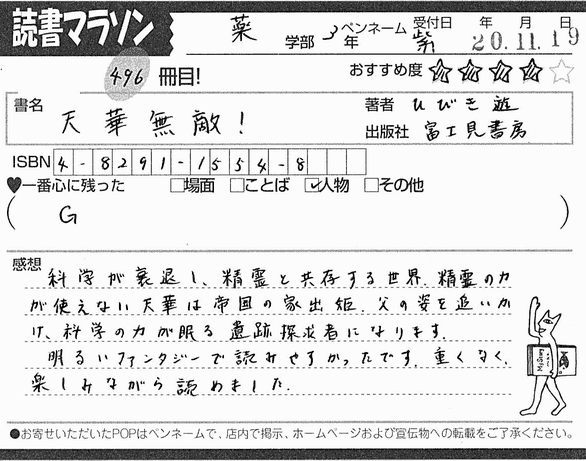 読書マラソン 薬 学部 3年 ペンネーム 紫 受付日 年 月 日 20.11.19
496 冊目! おすすめ度 ★★★★☆
書名 天華無敵! 著者 ひびき遊
出版社 富士見書房
ISBN 4-8291-1554-8
♥一番心に残った □場面 □ことば ☑人物 □その他
( G )
感想
科学が衰退し、精霊と共存する世界。精霊の力
が使えない天華は帝国の家出姫。父の姿を追いか
け、科学の力が眠る遺跡探求者になります。
明るいファンタジーで読みやすかったです。重くなく、
楽しみながら読めました。
Mystery
●お寄せいただいたPOPはペンネームで、店内で掲示、ホームページおよび宣伝物への転載をご了承ください。